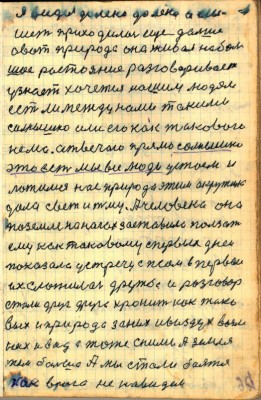 Я видел далеко далеко а слы-
шет приходилос еще далше
авот природа она живая на бол
шое растояние разговаривает
узнает хочется нашим людям
ест ли между нами такими
солнышко или его как такового
нема. атвечаю прямо солнышко
это ест мы все люди устоем и
ложимся нас природа этим окружила
дала свет и тму. А человека она
по земле на ногах заставила ползат
ему как таковому спервых дней
показала устречу с псом в первые
их сложилас дружба и разговор
стали друг друга хронит как тако
вых и природа за них и воздух возле
них и вода тоже сними А земля
тем более А мы стали боятся
как врага не навидим